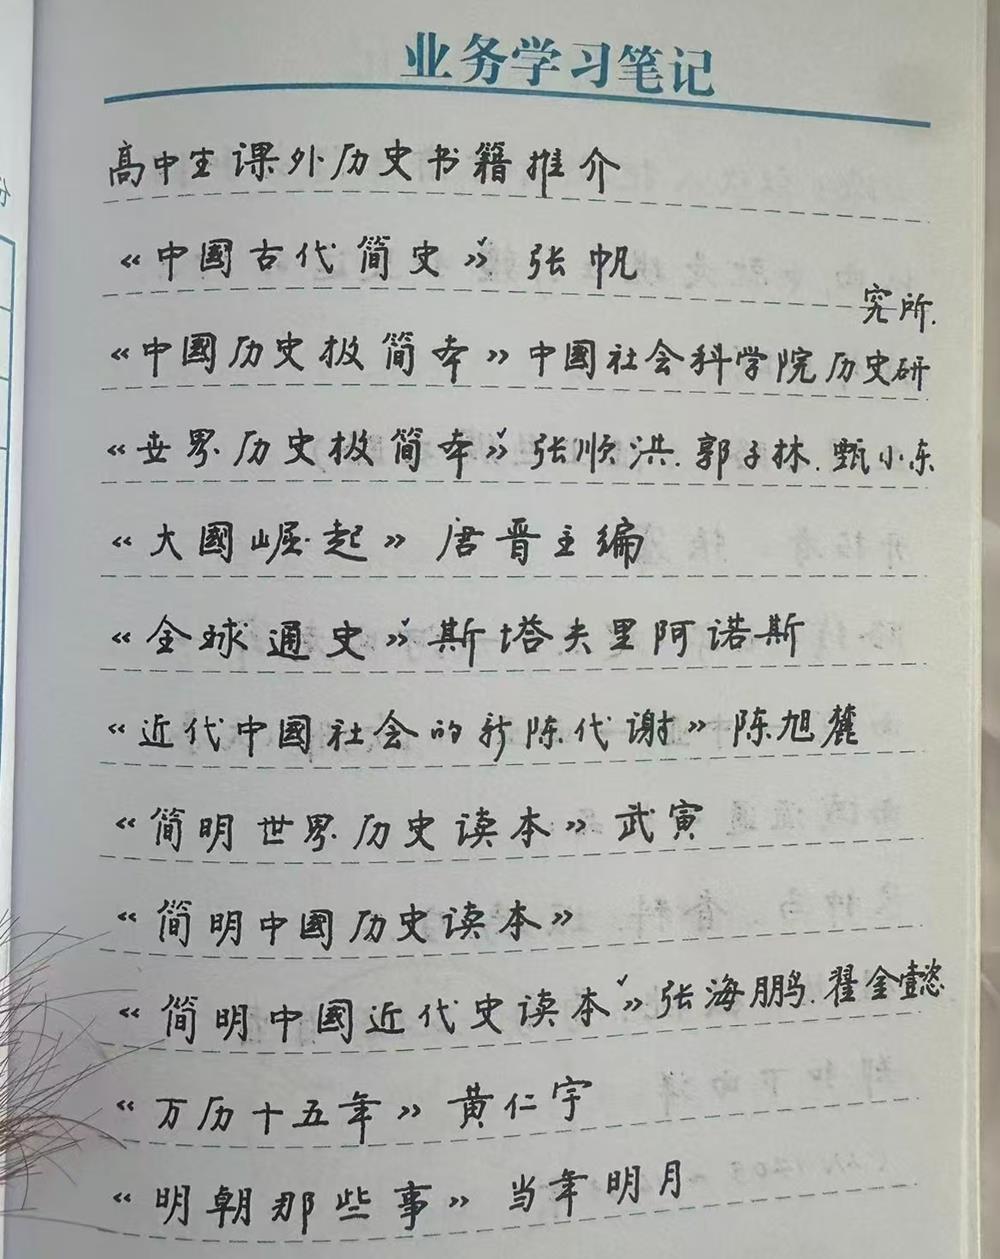 业务学习笔记
高中生课外历史书籍推介
《中國古代简史》✓张帆
《中國历史极简本》中國社会科学院历史研究所.
《世界历史极简本》✓张顺洪.郭子林.甄小东
《大國崛起》唐晋主编
《全球通史》✓斯塔夫里阿诺斯
《近代中國社会的新陈代谢》陈旭麓
《简明世界历史读本》武寅
《简明中國历史读本》
《简明中國近代史读本》✓张海鹏.翟金懿
《万历十五年》黄仁宇
《明朝那些事》当年明月